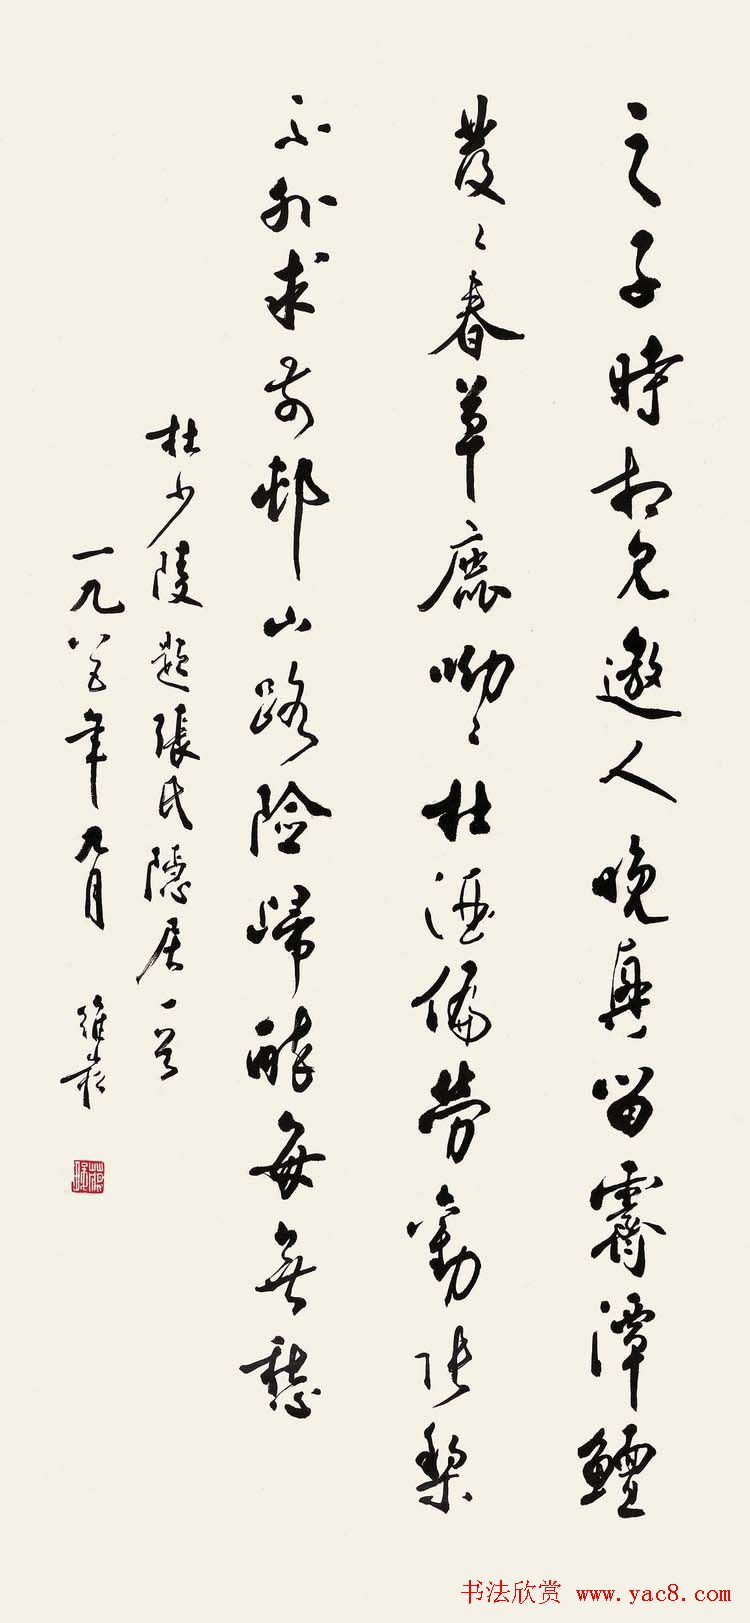 之子時相見邀人晚興留霽潭鱣
發〻春草鹿呦〻杜酒偏勞勸張梨
不外求前邨山路險歸醉每無愁
杜少陵題張氏隱居一首
一九八五年九月 維崧
书法欣赏 www.yac8.com